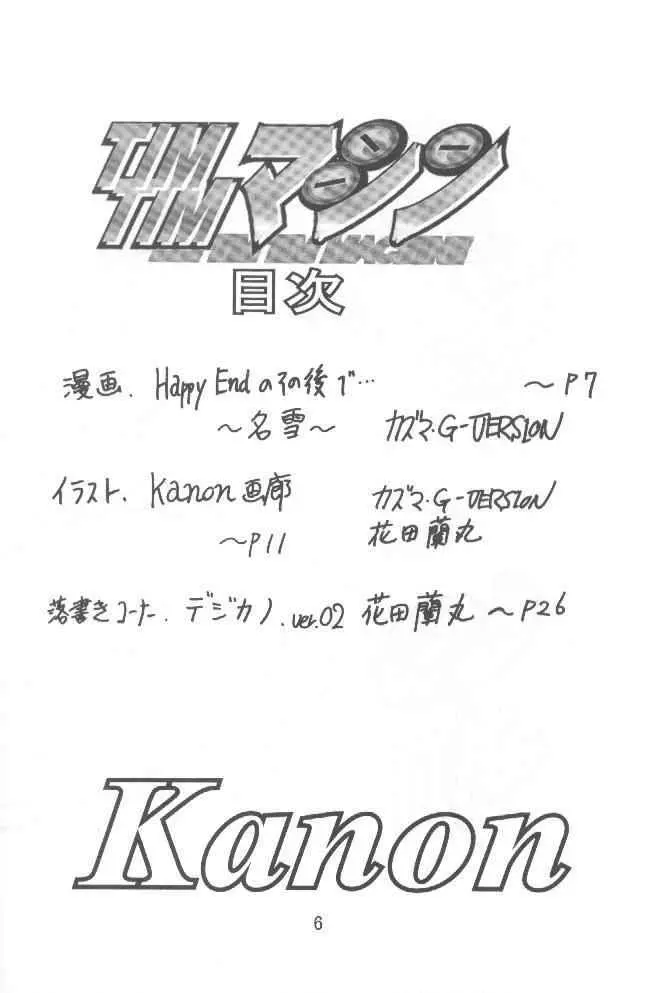 TIM
TIM マシン
目次
漫画、Happy Endのその後で… 〜P7
〜名雪〜 カズマ・G-VERSION
イラスト、Kanon画廊 カズマ・G-VERSION
〜P11 花田蘭丸
落書きコーナー、デジカノ、ver.02 花田蘭丸 〜P26
Kanon
6